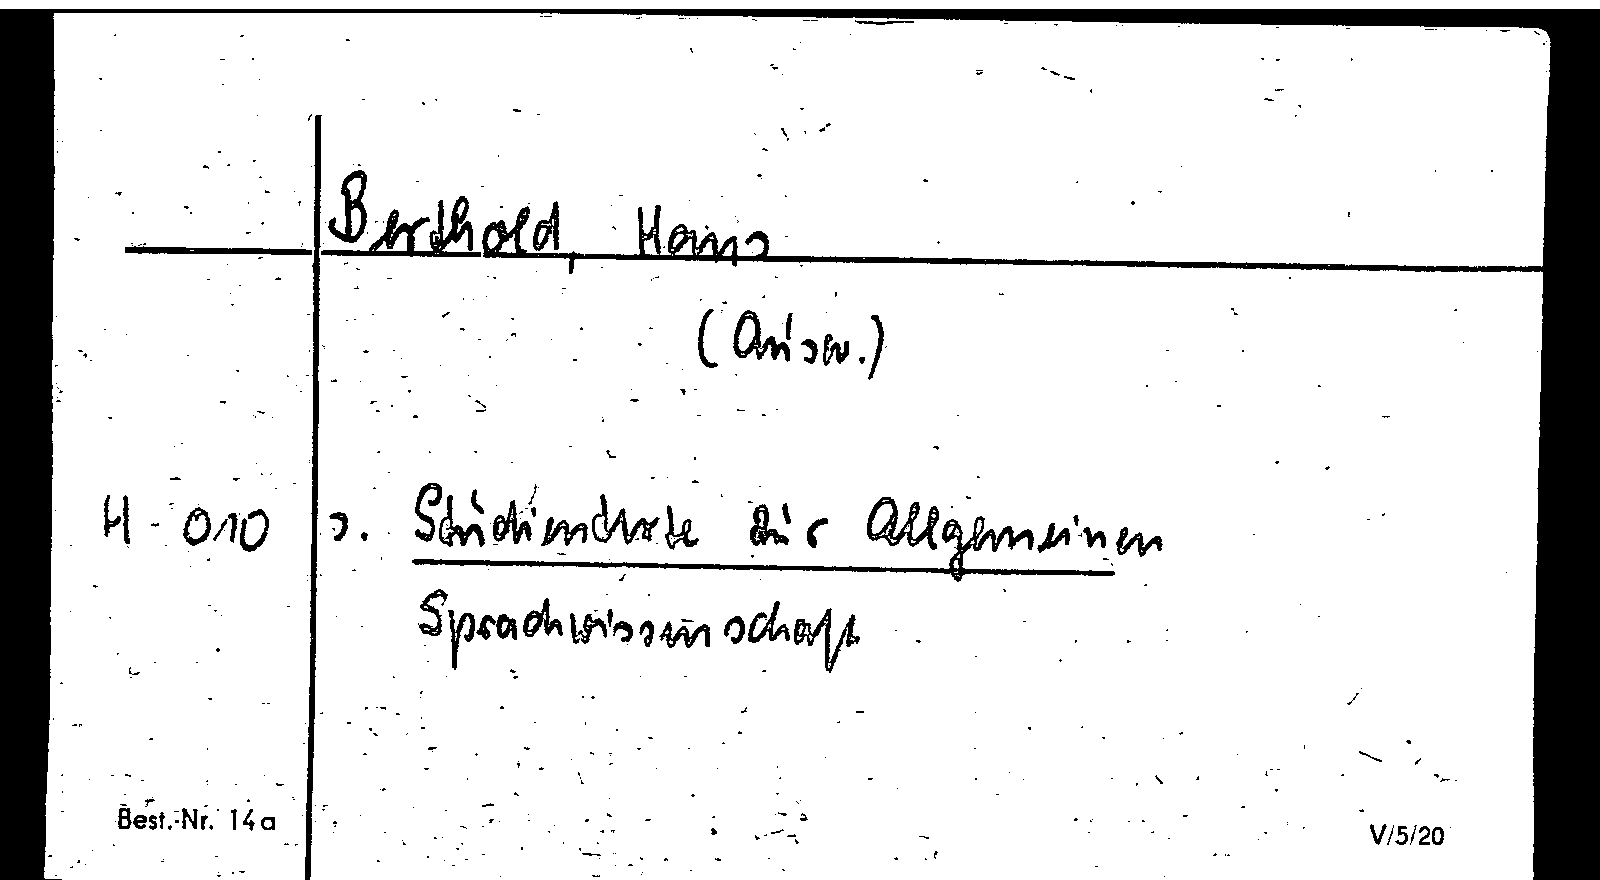 Berthold, Hans
(Ausw.)
H - 010 s. Studientexte zur Allgemeinen
Sprachwissenschaft
Best.-Nr. 14a V/5/20